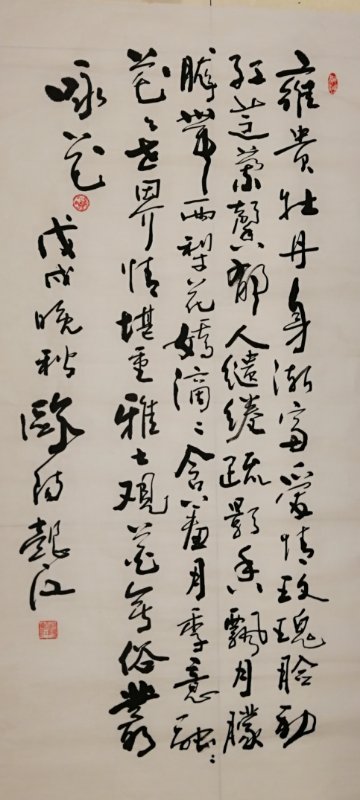 雍貴牡丹身渐富爱情玫瑰脸初
红芝蘭馨郁人缱绻疏影香飘月朦
胧带雨梨花娇滴滴含羞月季意融融
花花世界情堪重雅士观花俗
咏花
戊戌晚秋江